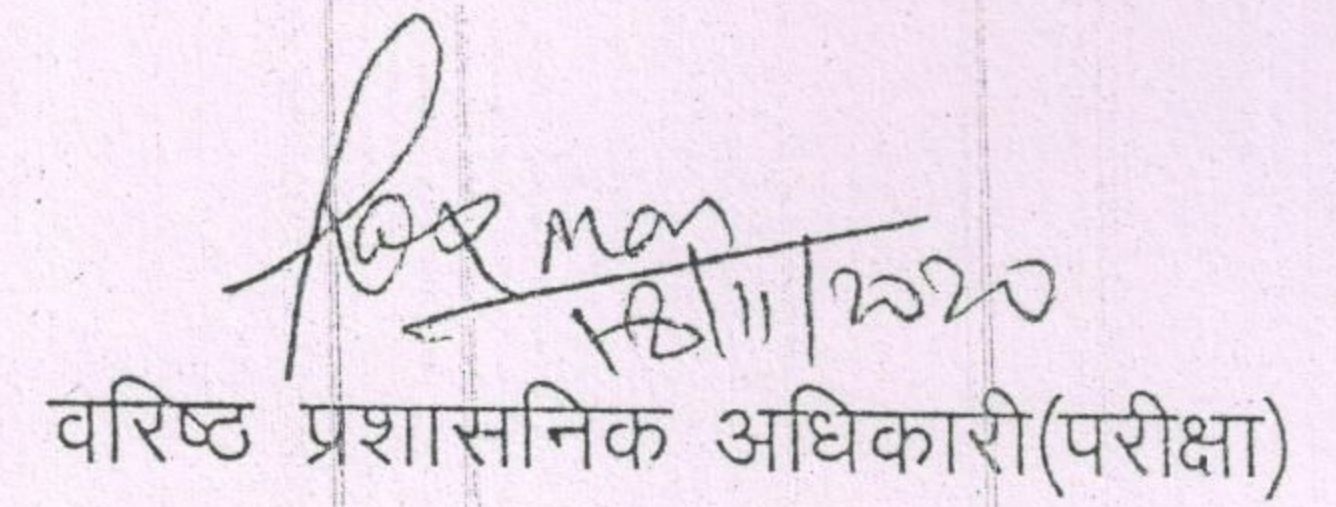 18/11/2020
वरिष्ठ प्रशासनिक अधिकारी(परीक्षा)